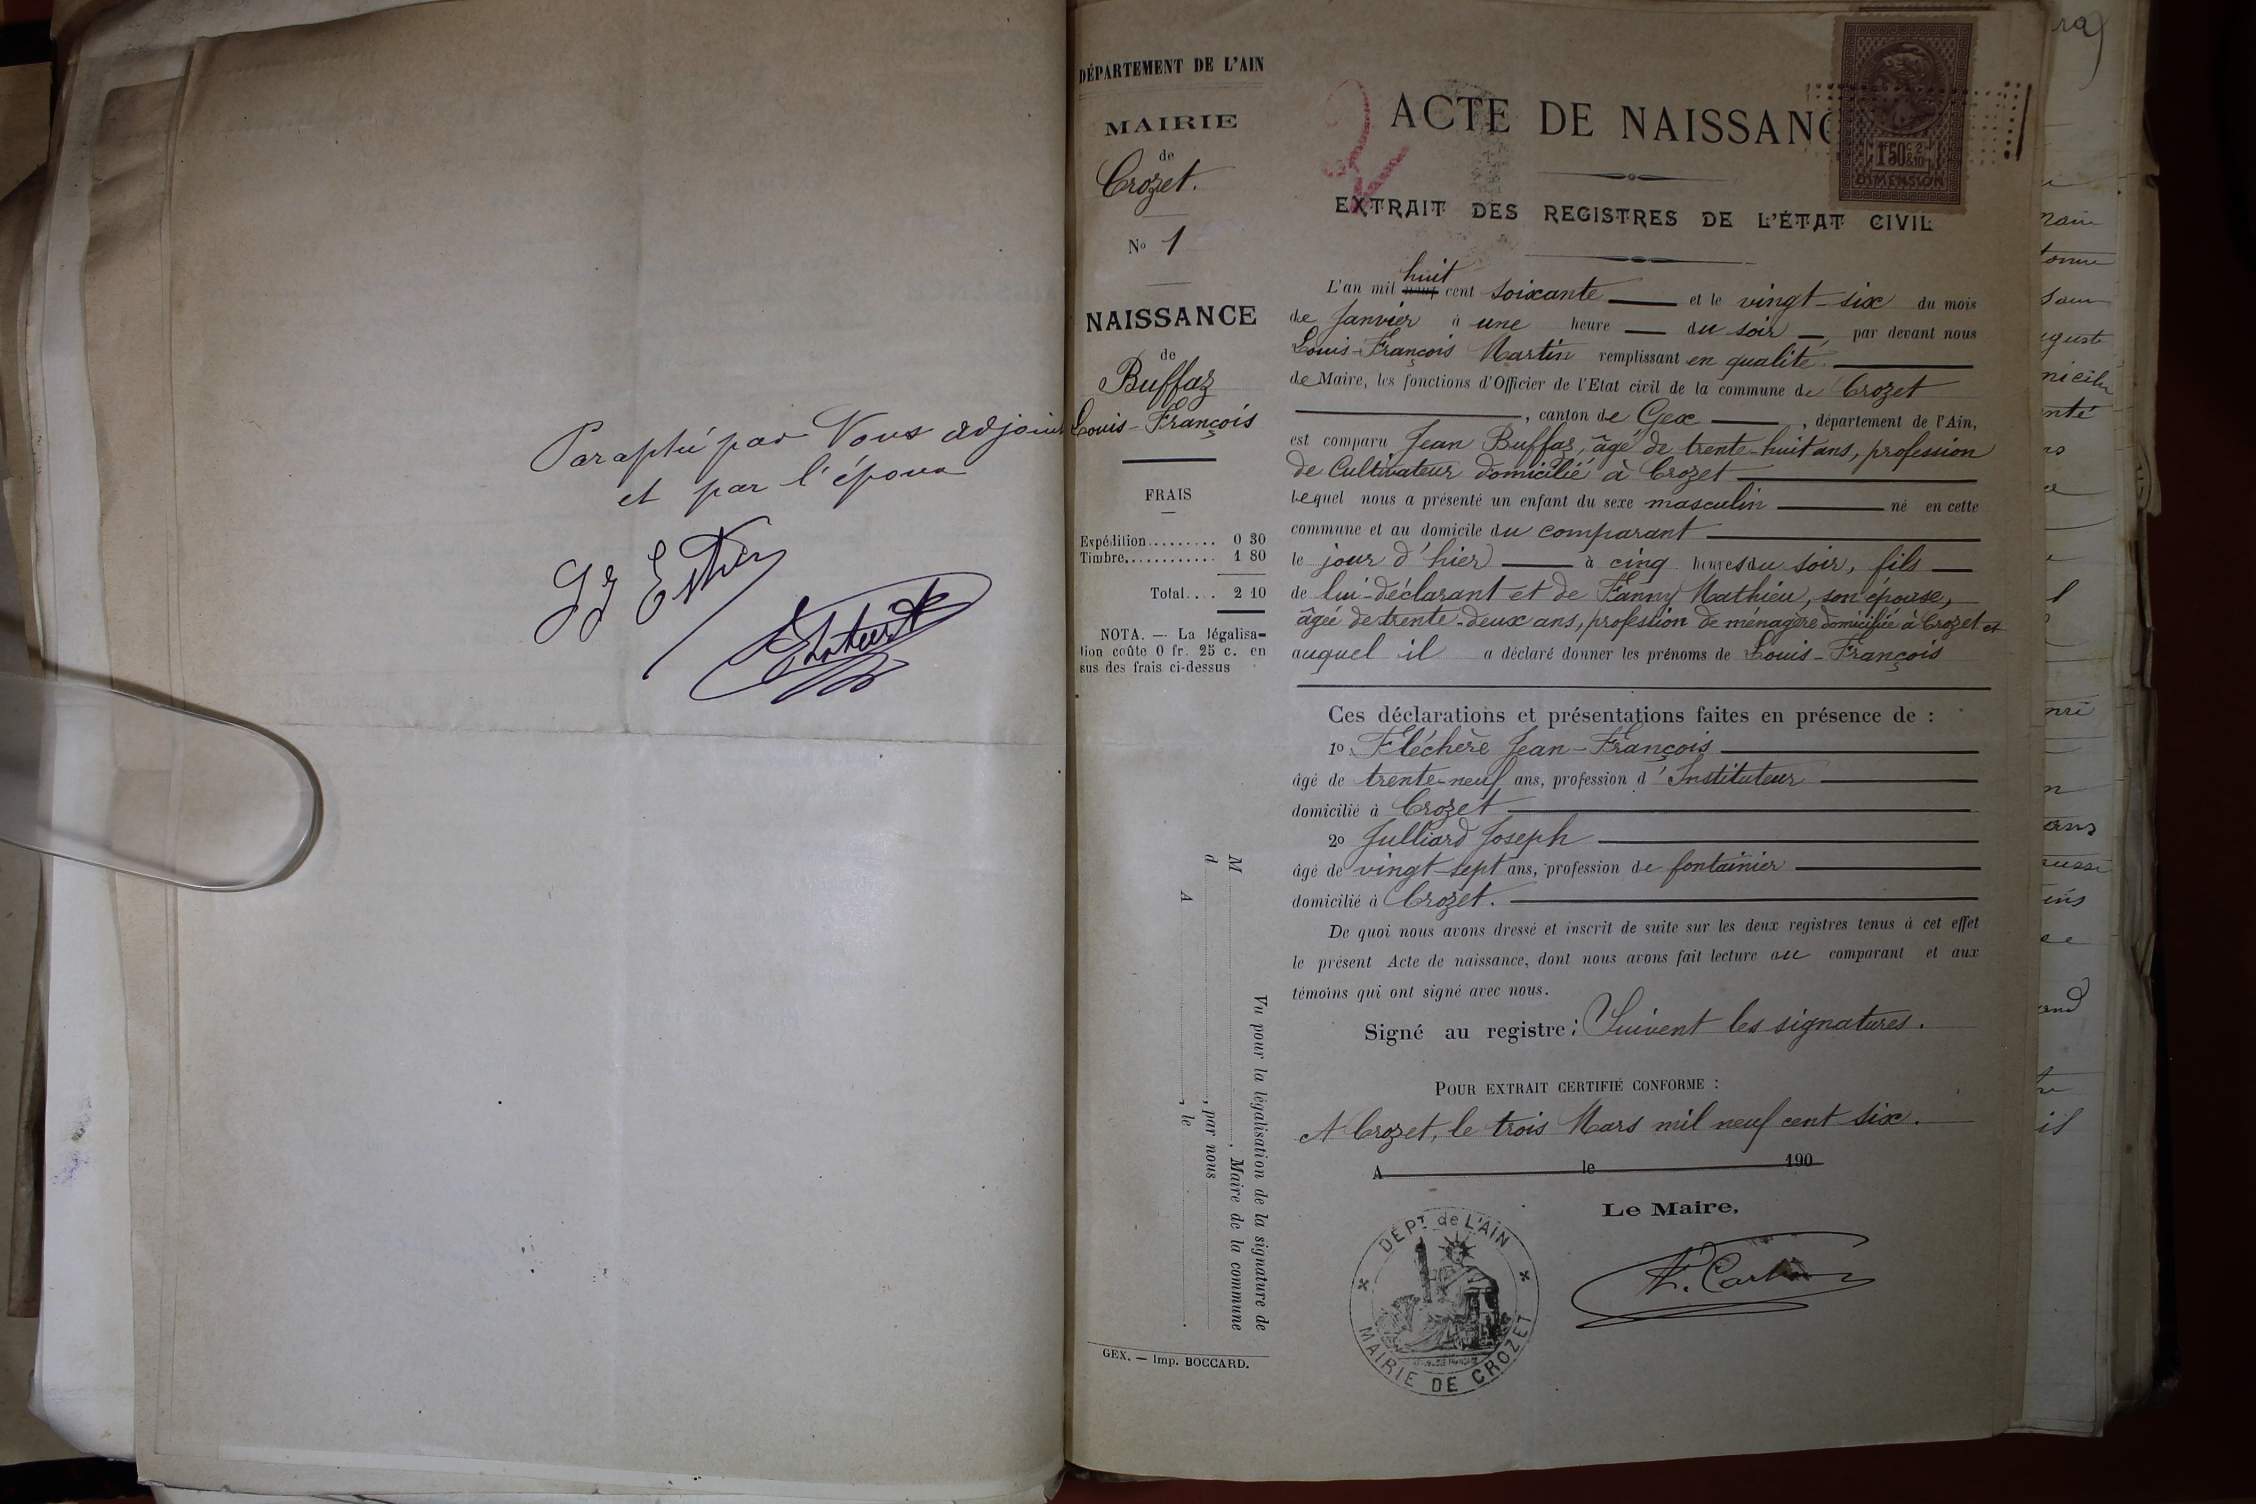 Paraphé par Nous adjoint
et par l'époux
DÉPARTEMENT DE L'AIN
MAIRIE
de
Crozet.
No 1
NAISSANCE
de
Buffaz
Louis-François
FRAIS
Expédition......... 0 30
Timbre............ 1 80
Total.... 2 10
NOTA. — La légalisa-
tion coûte 0 fr. 25 c. en
sus des frais ci-dessus
Vu pour la légalisation de la signature de
M , Maire de la commune
d , par nous
A , le .
GEX. — Imp. BOCCARD.
2
ACTE DE NAISSANC
1F50c 2/10
DIMENSION
EXTRAIT DES REGISTRES DE L'ÉTAT CIVIL
huit
L'an mil neuf cent soixante et le vingt-six du mois
de Janvier à une heure du soir, par devant nous
Louis-François Martin remplissant en qualité
de Maire, les fonctions d'Officier de l'Etat civil de la commune de Crozet
, canton de Gex , département de l'Ain,
est comparu Jean Buffaz, âgé de trente-huit ans, profession
de Cultivateur domicilié à Crozet
Lequel nous a présenté un enfant du sexe masculin né en cette
commune et au domicile du comparant
le jour d'hier à cinq heures du soir, fils
de lui-déclarant et de Fanny Mathieu, son épouse,
âgée de trente-deux ans, profession de ménagère domiciliée à Crozet et
auquel il a déclaré donner les prénoms de Louis-François
Ces déclarations et présentations faites en présence de :
1o Fléchère Jean-François
âgé de trente-neuf ans, profession d'Instituteur
domicilié à Crozet
2o Julliard Joseph
âgé de vingt-sept ans, profession de fontainier
domicilié à Crozet.
De quoi nous avons dressé et inscrit de suite sur les deux registres tenus à cet effet
le présent Acte de naissance, dont nous avons fait lecture au comparant et aux
témoins qui ont signé avec nous.
Signé au registre : Suivent les signatures.
POUR EXTRAIT CERTIFIÉ CONFORME :
A Crozet, le trois Mars mil neuf cent six.
A le 190
Le Maire,
DÉPT de L'AIN
MAIRIE DE CROZET